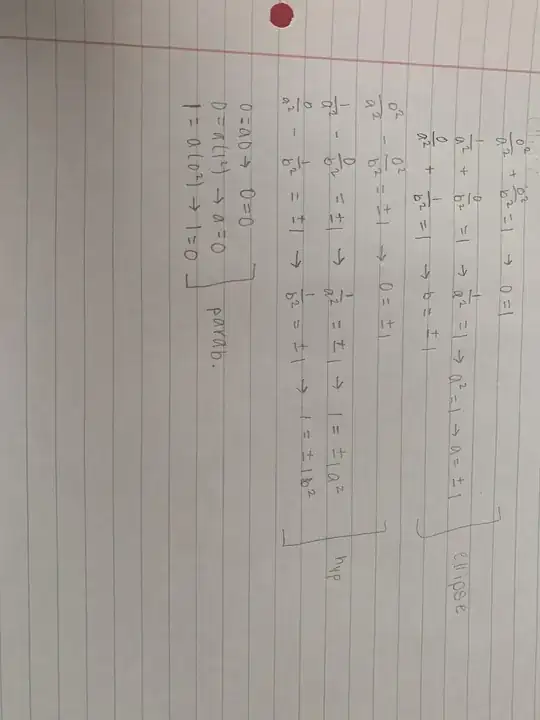 0²/a² + 0²/b² = 1 → 0=1
1/a² + 0/b² = 1 → 1/a² = 1 → a² = 1 → a = ±1
0/a² + 1/b² = 1 → b = ±1
ellipse
0²/a² - 0²/b² = ±1 → 0 = ±1
1/a² - 0/b² = ±1 → 1/a² = ±1 → 1 = ±1a²
0/a² - 1/b² = ±1 → 1/b² = ±1 → 1 = ±1b²
hyp
0=a0 → 0=0
0=a(1²) → a=0
1=a(0²) → 1=0
parab.